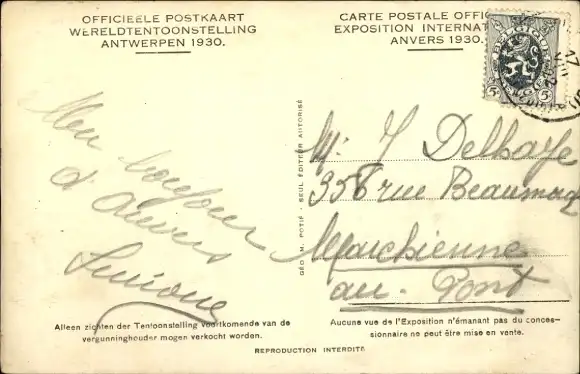 OFFICIEELE POSTKAART
WERELDTENTOONSTELLING
ANTWERPEN 1930.
CARTE POSTALE OFFIC
EXPOSITION INTERNAT
ANVERS 1930.
BELGIQUE
5 5
17
VIII
Mr. J Delhaye
356 rue Beaumont
Marchienne
au-Pont
bonjour
d'Anvers
Simone
GÉO M. POTIF - SEUL ÉDITEUR AUTORISÉ
Alleen zichten der Tentoonstelling voortkomende van de
vergunninghouder mogen verkocht worden.
Aucune vue de l'Exposition n'émanant pas du conces-
sionnaire ne peut être mise en vente.
REPRODUCTION INTERDITE